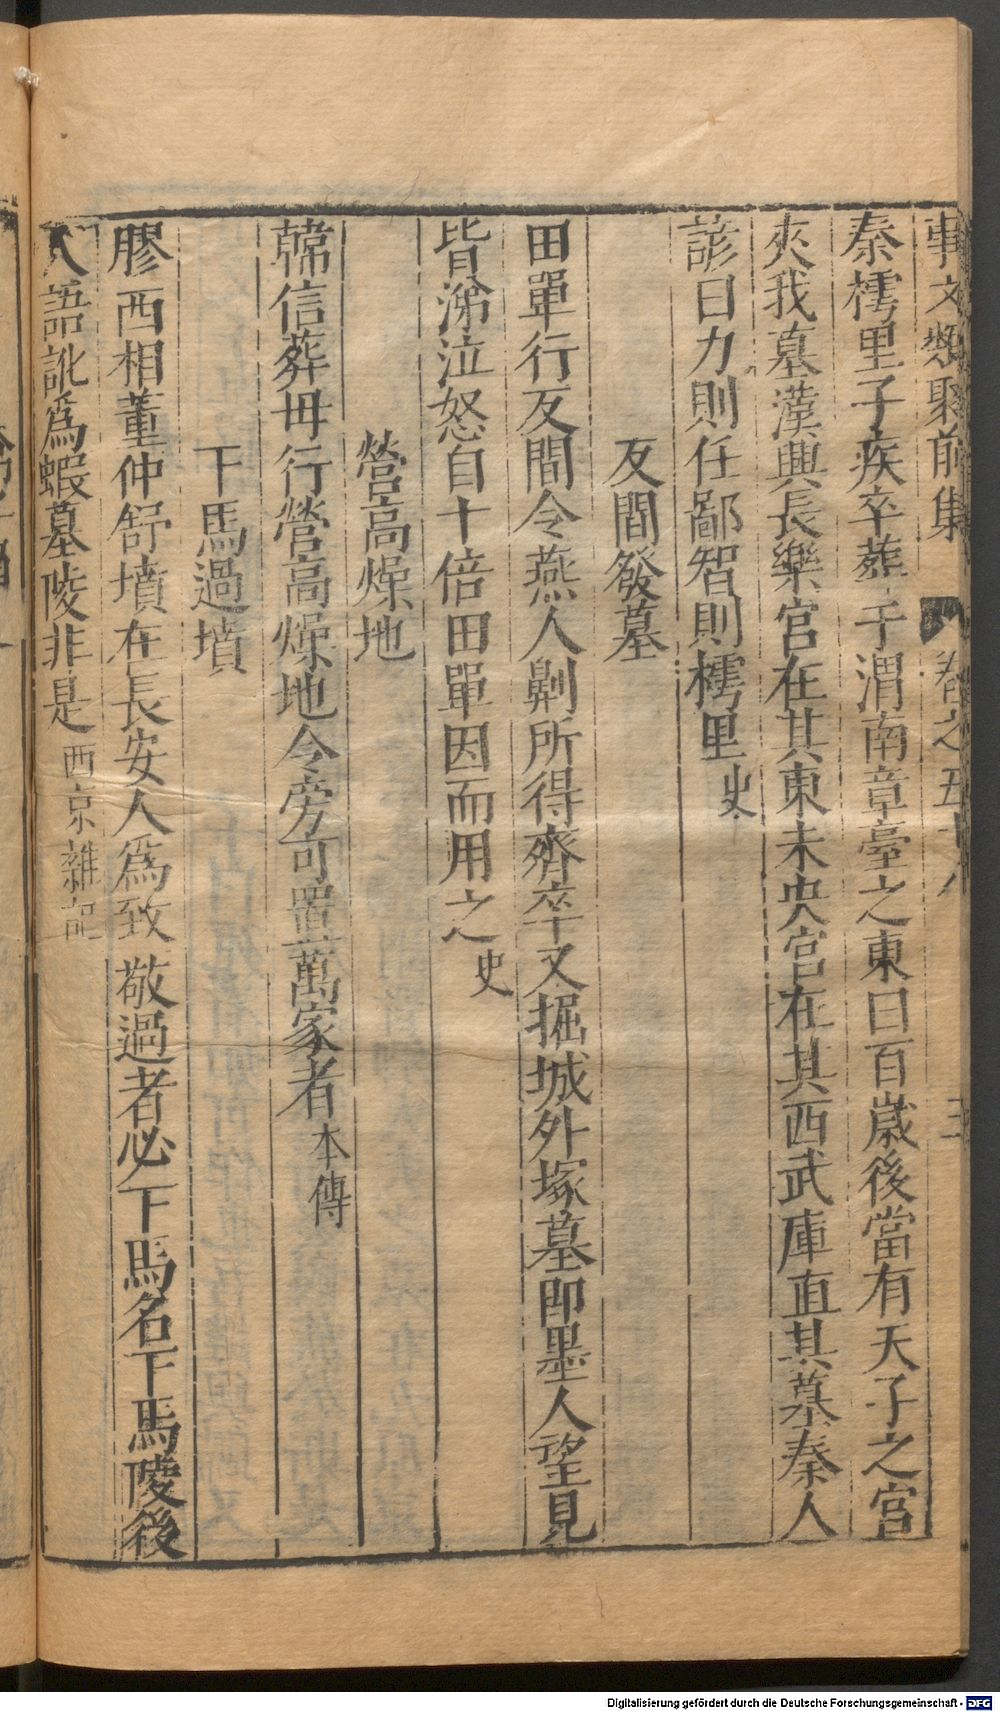 事文類聚前集 卷之五十八 三
秦樗里子疾卒葬于渭南章臺之東曰百歲後當有天子之宮
夾我墓漢興長樂宮在其東未央宮在其西武庫直其墓秦人
諺曰力則任鄙智則樗里史
反間發墓
田單行反間令燕人劓所得齊卒又掘城外塚墓即墨人望見
皆涕泣怒自十倍田單因而用之史
營高燥地
韓信葬母行營高燥地令旁可置萬家者本傳
下馬過墳
膠西相董仲舒墳在長安人為致敬過者必下馬名下馬陵後
人語訛為蝦墓陵非是西京雜記
Digitalisierung gefördert durch die Deutsche Forschungsgemeinschaft - DFG